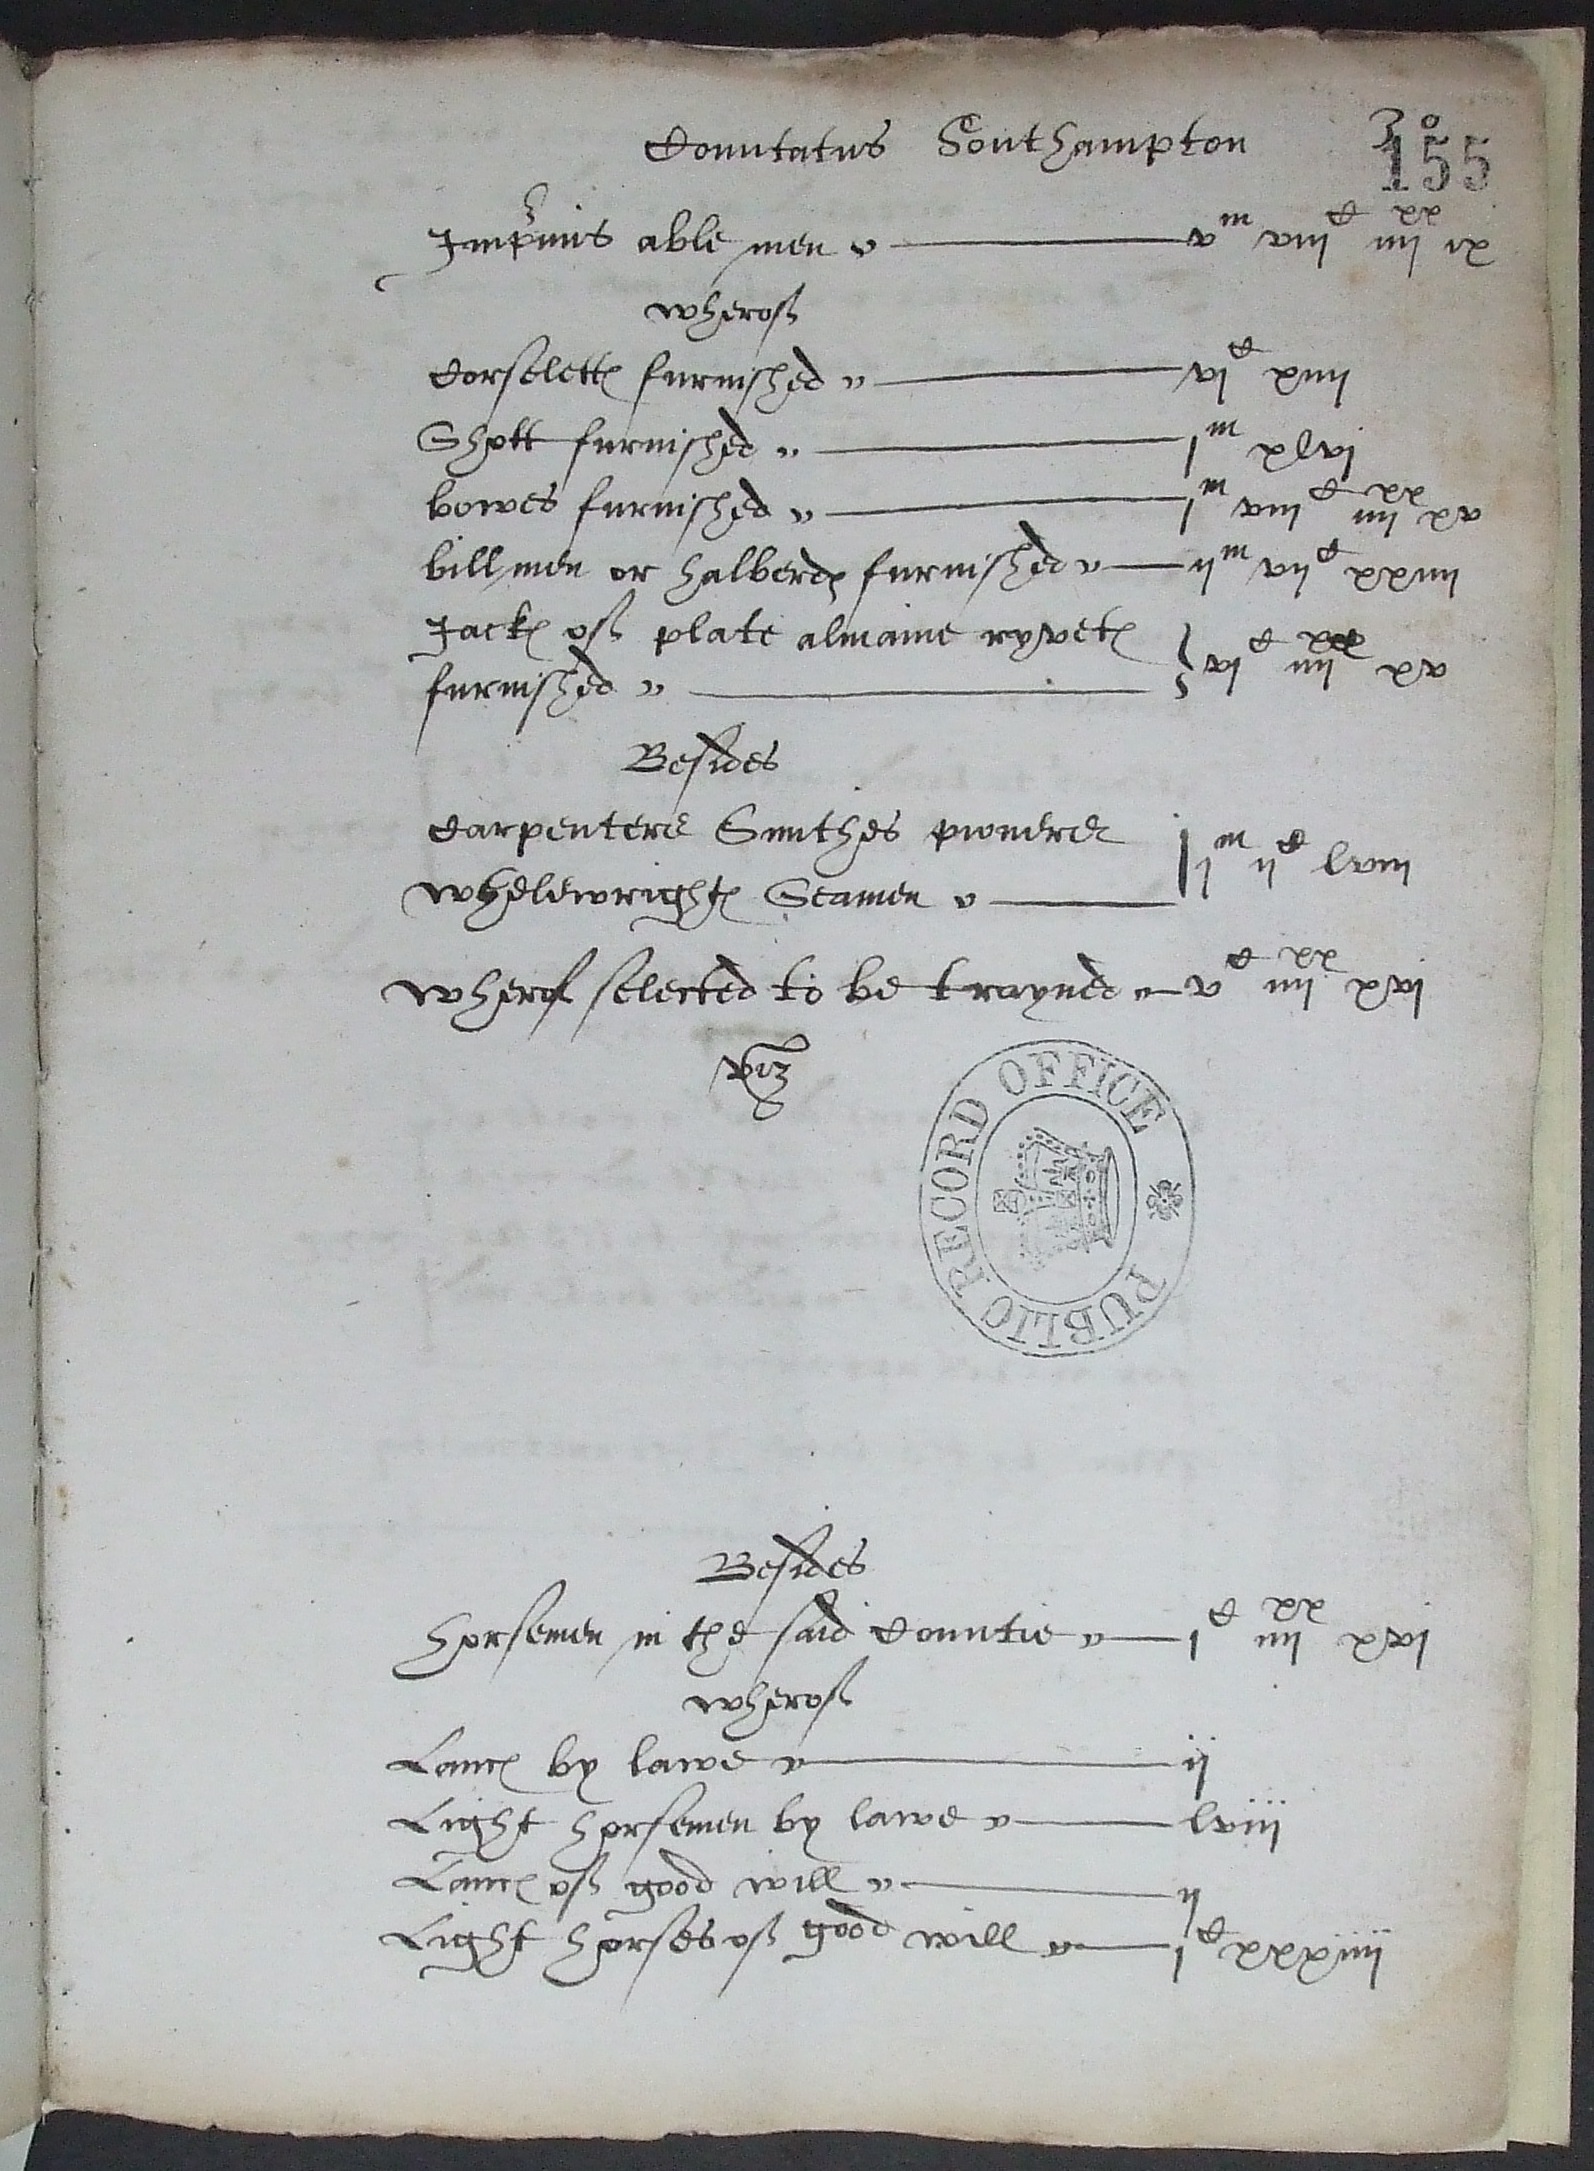 Comitatus Southampton 3o
155
Imprimis able men — vm viijC iiijxx ix
wherof
Corseletts furnished — viC xiiij
Shott furnished — jm xlvj
bowes furnished — jm viijC iiijxx xv
bill men or halberds furnished — ijm vijC xxiiij
Jacks of plate almaine ryvets
furnished — viC iiijxx xv
Besides
Carpenters Smithes pioners
Whelewrights Seamen — jm ijC lviij
wherof selected to be trayned — vC iiijxx xvj
viz
PUBLIC RECORD OFFICE
Besides
horsemen in the said Countie — jC iiijxx xvj
wherof
Lances by lawe — ij
Light horsemen by lawe — lviij
Lances of good will — ij
Light horses of good will — jC xxxiiij